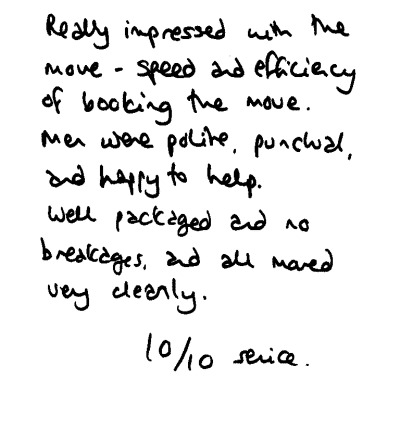 Really impressed with the
move - speed and efficiency
of booking the move.
Men were polite, punctual,
and happy to help.
Well packaged and no
breakages, and all moved
very cleanly.
10/10 service.